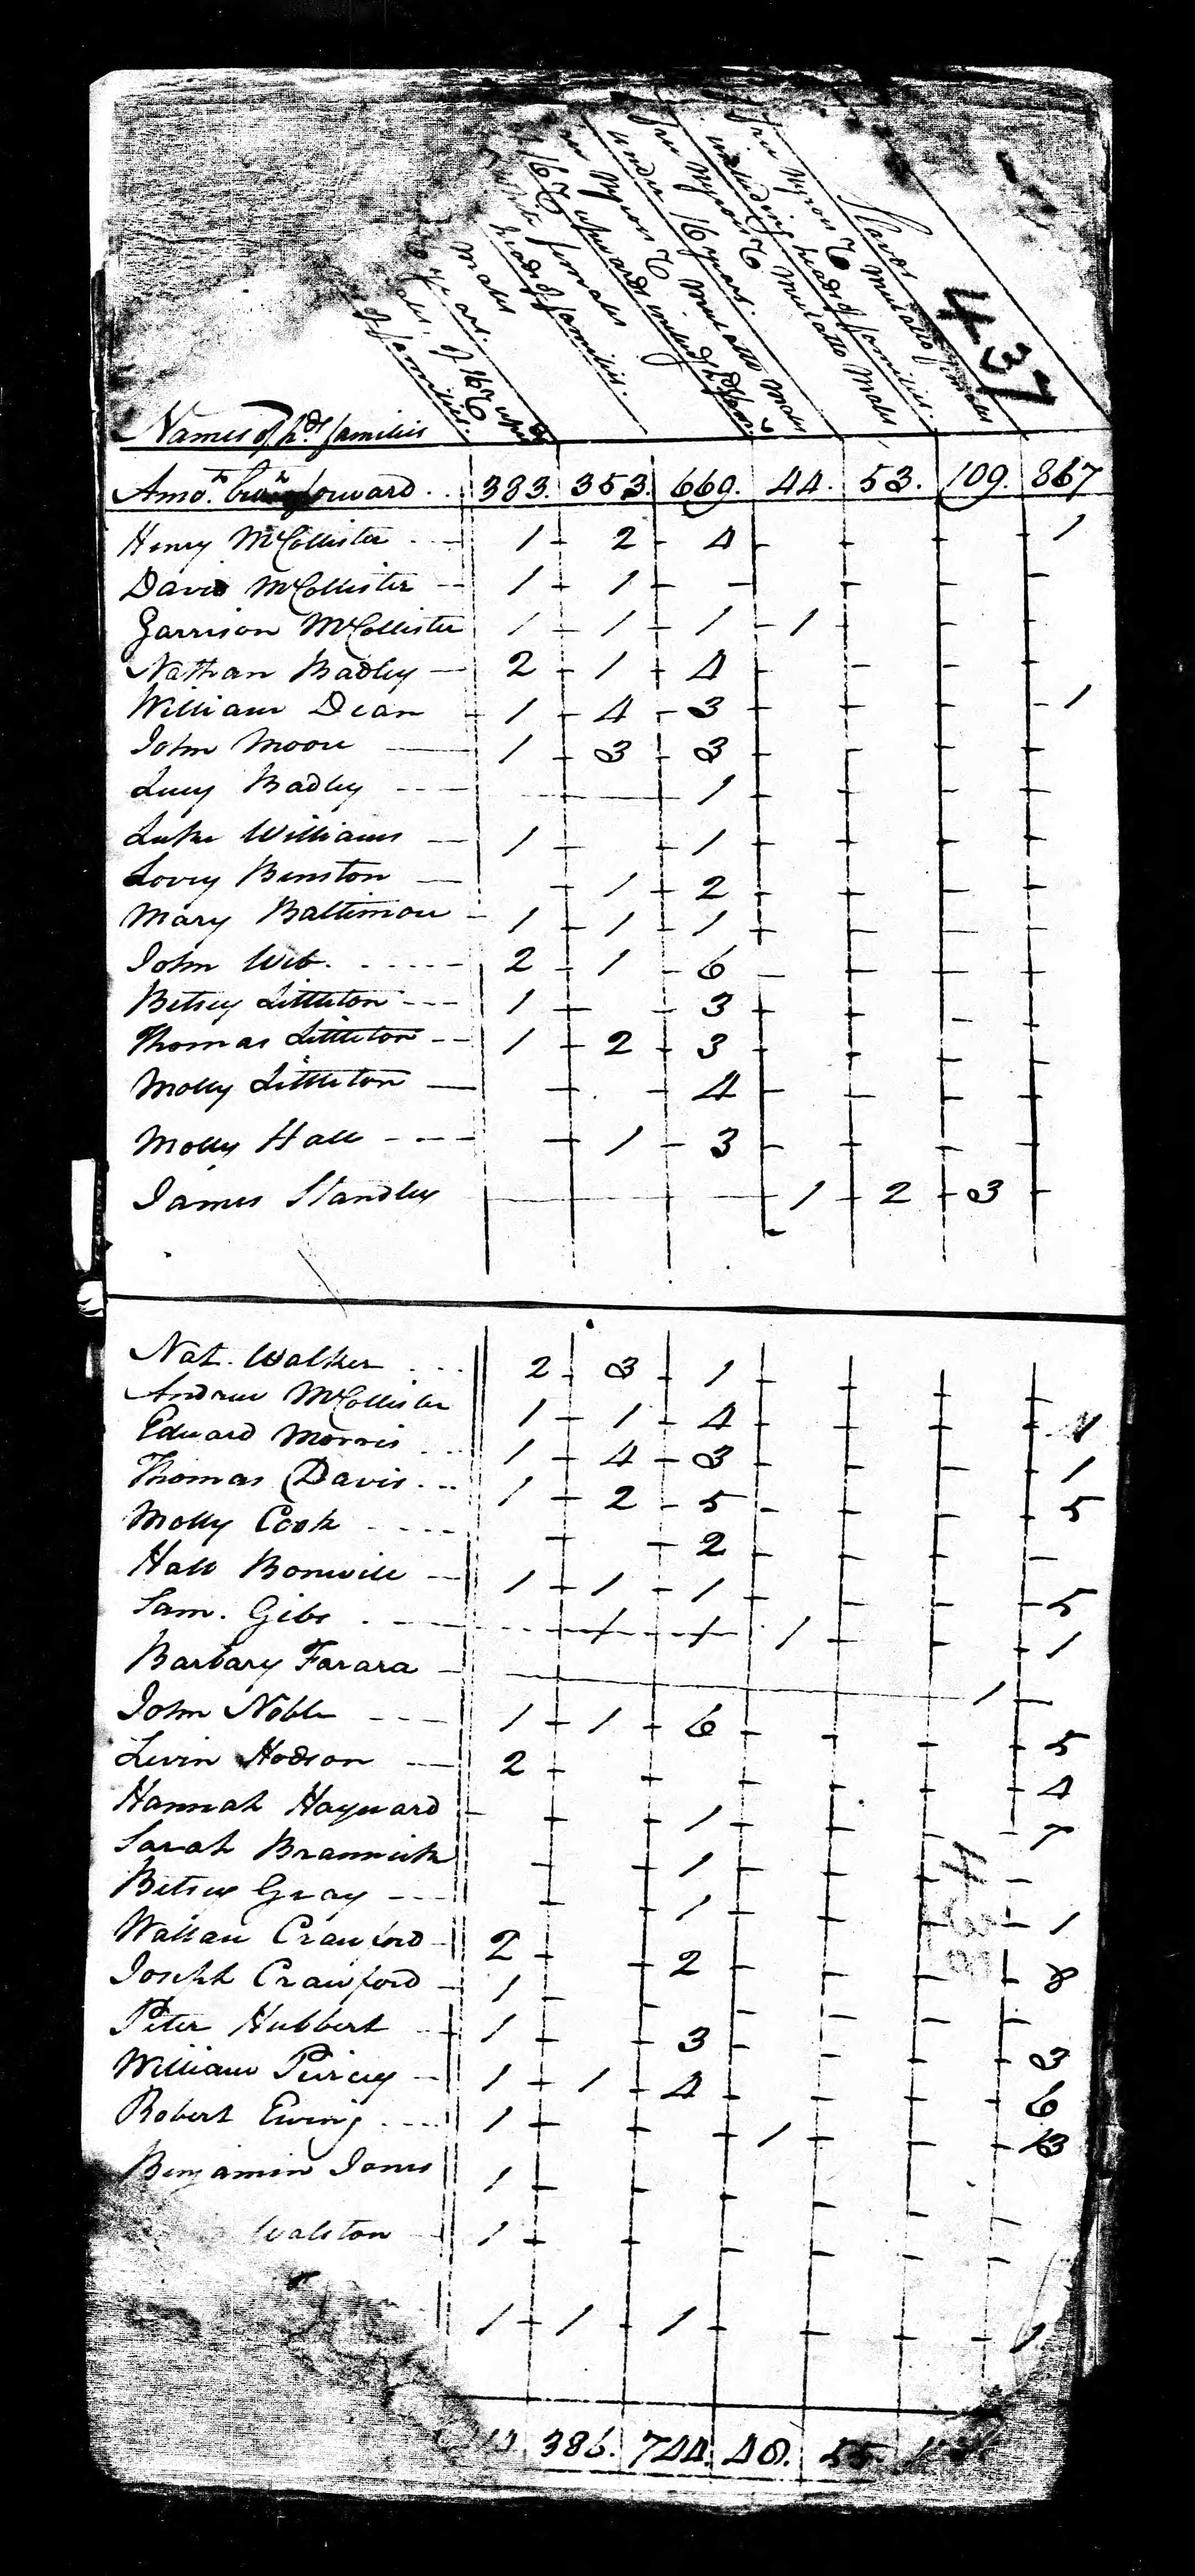 Slaves
Free Negroes & Mulatto females
including heads of families.
Free Negroes & Mulatto Males
under 16 years.
Free Negroes & Mulatto Males
16 & upwards includg hds fam.
White females
heads of families.
Males
years.
of 16 & upds
of families.
437
Names of hds families
Amo.t brot forward .. 383. 353. 669. 44. 53. 109. 867
Henry McCollister 1 - 2 - 4 - - - - 1
David McCollister -- 1 - 1 - - - - -
Garrison McCollister 1 - 1 - 1 - 1 - - -
Nathan Badley - 2 - 1 - 4 - - - -
William Dean - 1 - 4 - 3 - - - - 1
John Moore - 1 - 3 - 3 - - - -
Lucy Badley --- 1 - - - -
Luke Williams - 1 - 1 - - - -
Lovey Benston - - 1 - 2 - - - -
Mary Baltimore - 1 - 1 - 1 - - - -
John Web. ---- 2 - 1 - 6 - - - -
Betsey Littleton --- 1 - 3 - - - -
Thomas Littleton -- 1 - 2 - 3 - - - -
Molly Littleton - - - 4 - - - -
Molly Hall ---- - 1 - 3 - - - -
James Standley 1 - 2 - 3 -
Nat. Walker ... 2 - 3 - 1 - - - -
Andrew McCollister 1 - 1 - 4 - - - -
Edward Morris .. 1 - 4 - 3 - - - - 1
Thomas Davis ... 1 - 2 - 5 - - - - 5
Molly Cook ---- - - 2 - - - -
Hall Bonwill - 1 - 1 - 1 - - - - 5
Sam. Gibs . -- 1 - - - 1
Barbary Farara - 1 -
John Noble --- 1 - 1 - 6 - - - - 5
Levin Hodson -- 2 - - - - - - 4
Hannah Hayward - - - 1 - - - - 7
Sarah Brannick - - 1 - - - -
Betsey Gray --- - - 1 - - - - 1
438
Crawford - 2 - - 2 - - - - 8
Joseph Crawford - 1 - - - - - -
Peter Hubbert - 1 - - 3 - - - - 3
William Percey - 1 - 1 - 4 - - - - 6
Robert Ewing ---- 1 - - - 1 - - - 13
Benjamin Jones 1 - - - - - -
Walston - 1 - - - - - -
1 - 1 - 1 - - - - 1
386. 744. 48. 55.